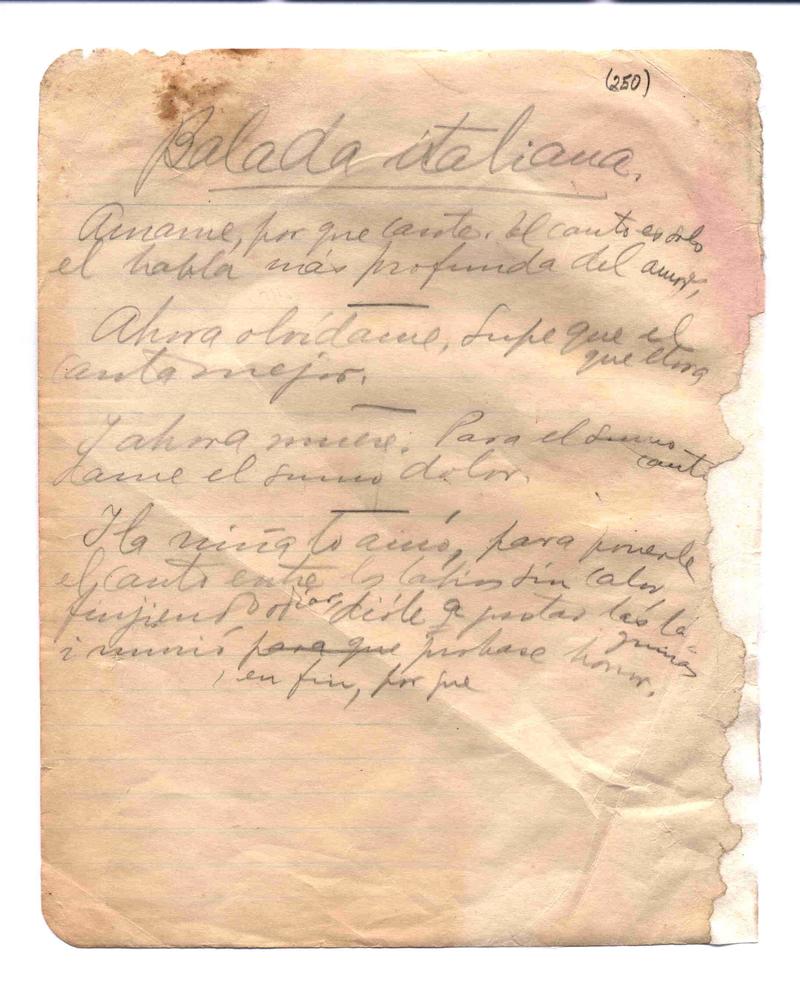 (250)
Balada italiana.
Amame, por que cante. El canto es solo
el habla más profunda del amor,
Ahora olvídame. Supe que el
que llora
canta mejor.
I ahora muere. Para el sumo
canto
dame el sumo dolor.
I la niña lo amó, para ponerle
el canto entre los labios sin calor,
finjiendo odiar, dióle a gustar las lá-
grimas
i murió para que probase horror.
, en fin, por que